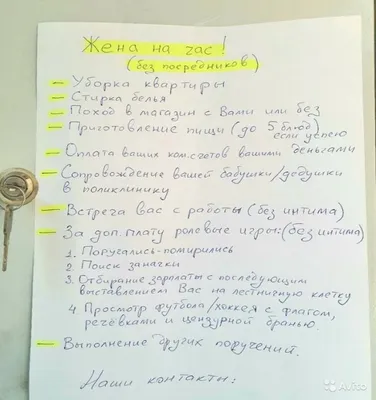 Жена на час!
(без посредников)
— Уборка квартиры
— Стирка белья
— Поход в магазин с Вами или без
— Приготовление пищи (до 5 блюд
если успею
— Оплата ваших ком. счетов вашими деньгами
— Сопровождение вашей бабушки/дедушки
в поликлинику
— Встреча вас с работы (без интима)
— За доп. плату ролевые игры: (без интима)
1. Поругались-помирились
2. Поиск заначки
3. Отбирание зарплаты с последующим
выставлением Вас на лестничную клетку
4. Просмотр футбола/хоккея с флагом,
речёвками и цензурной бранью.
— Выполнение других поручений.
Наши контакты:
Avito